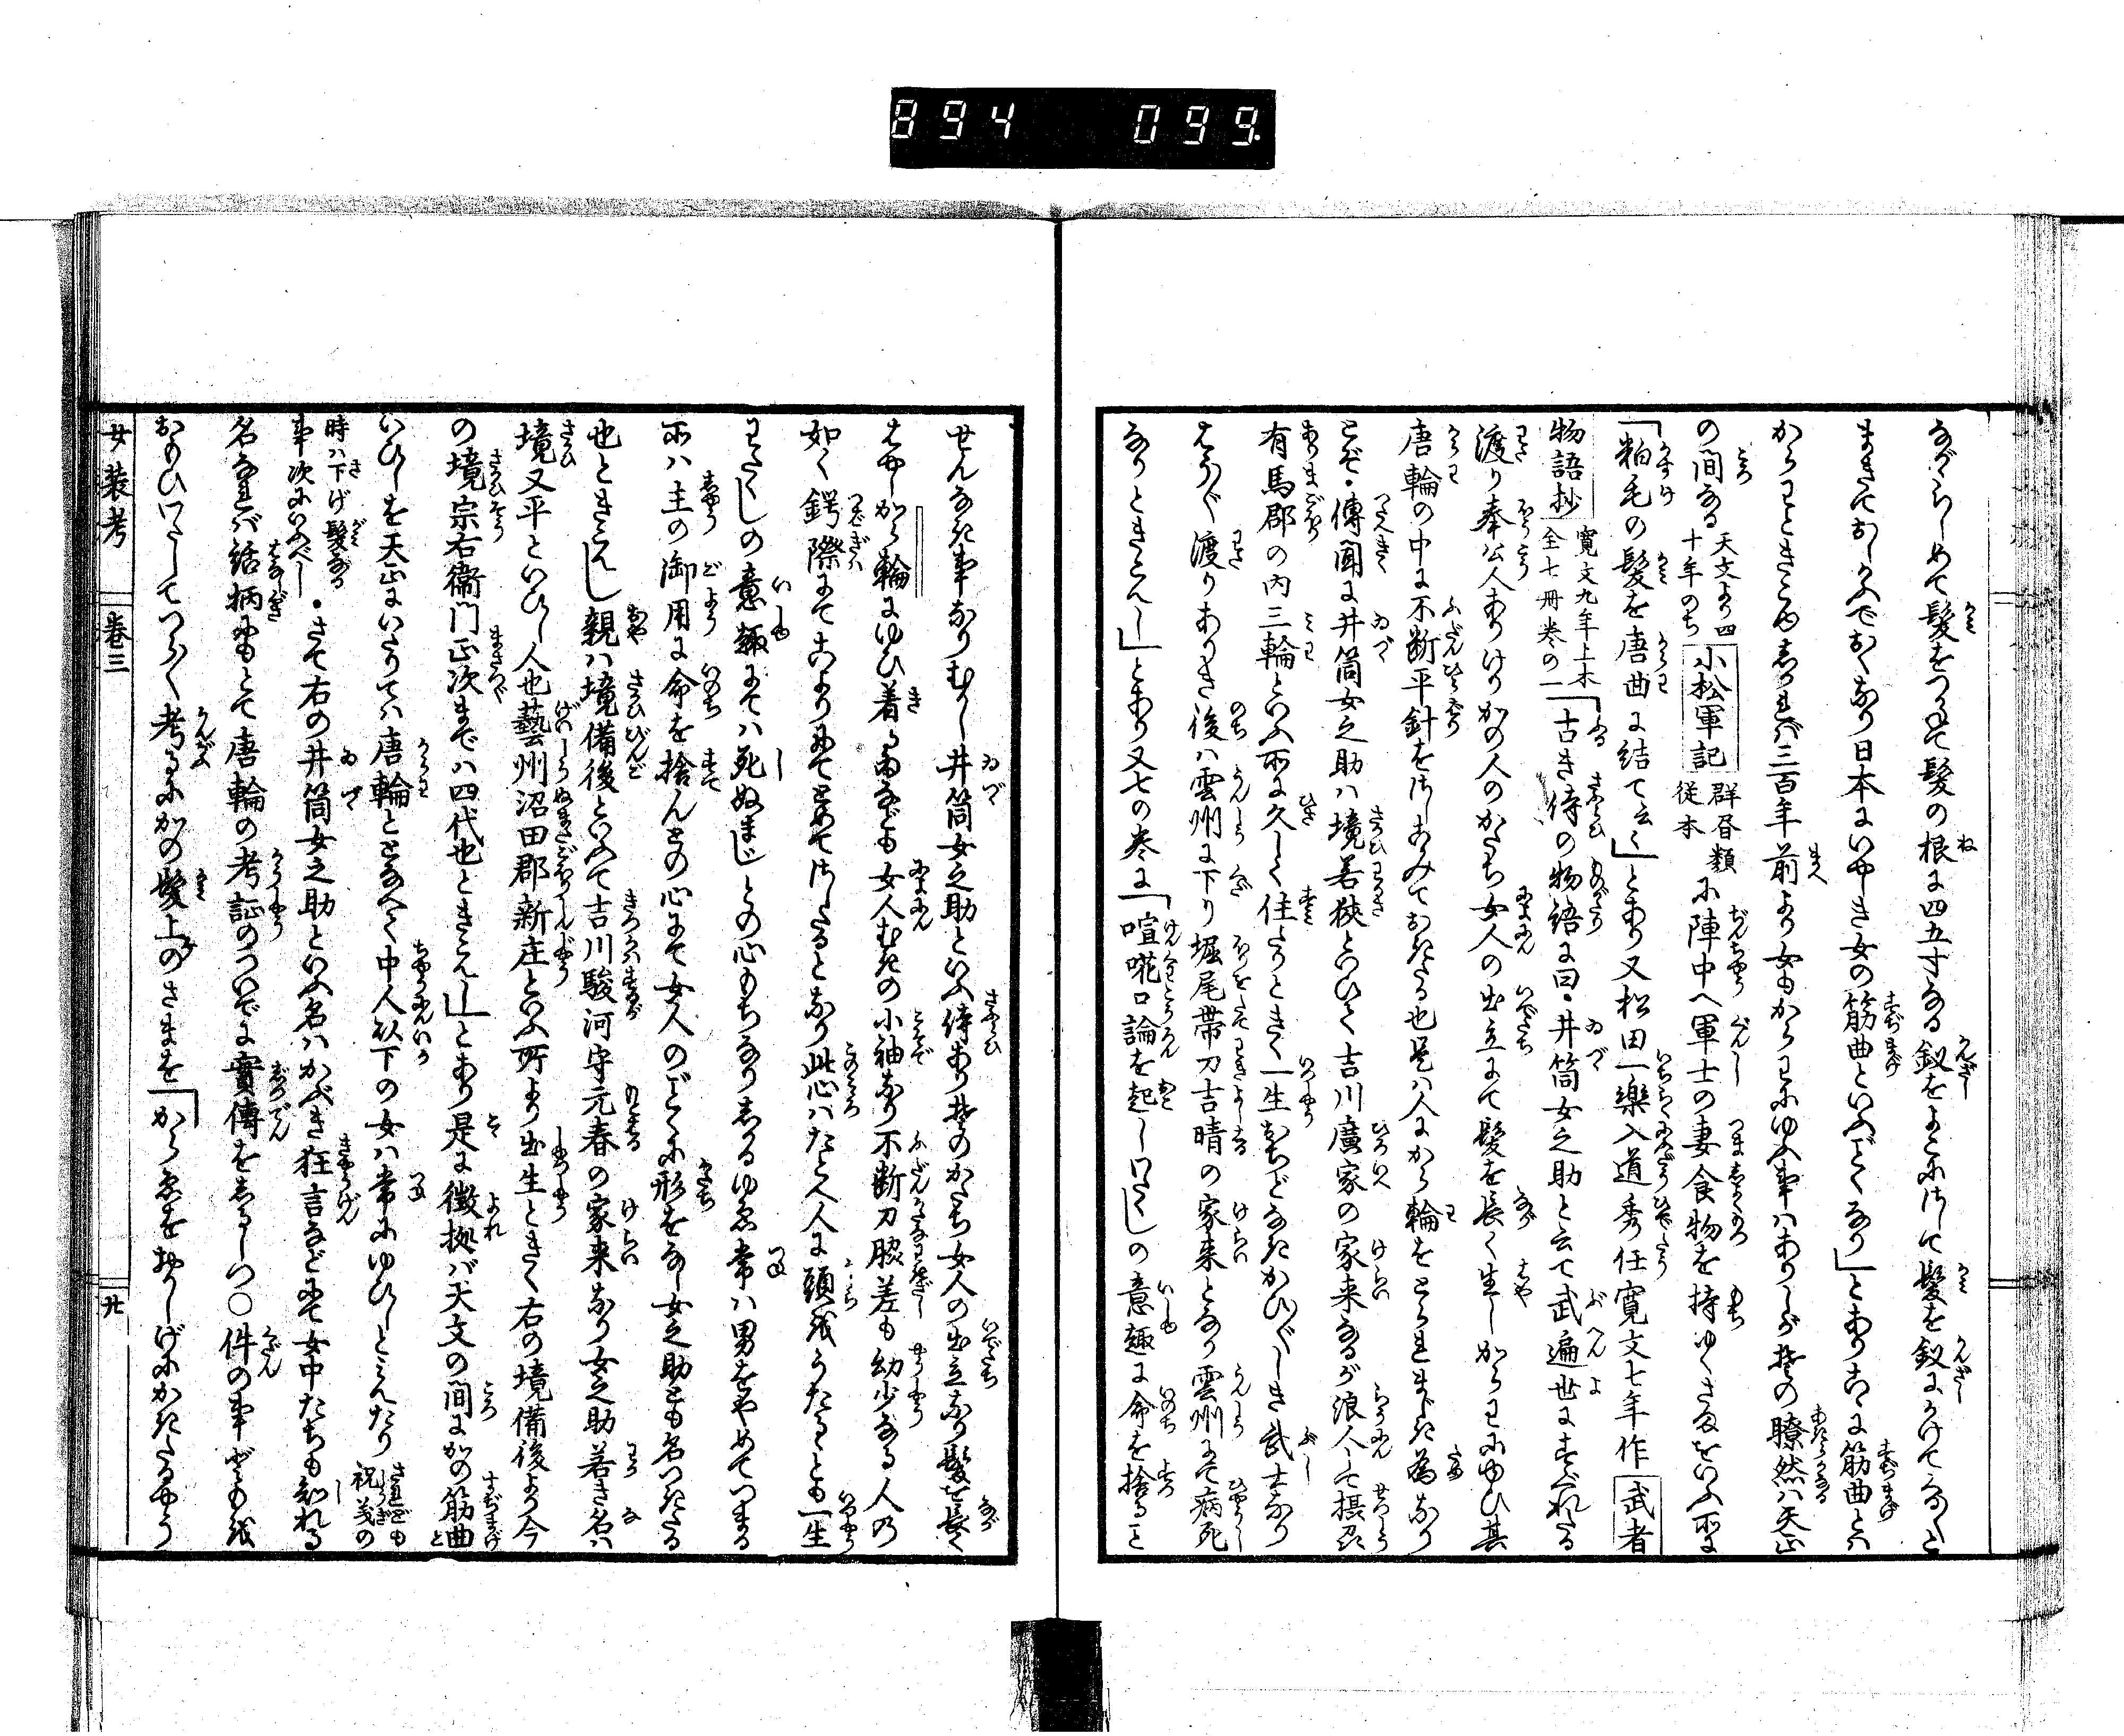 894 099
ながらしめて髪をつかねて髪の根に四五寸なる釵をよこにさして髪を釵にかけてわなと
まきておしかふでおくなり日本にいやしき女の筋曲といふごとくなり」とありこゝに筋曲とは
からわときこゆしかれば三百年前より女もからわにゆふ事はありしが其の瞭然は天正
の間なる天文より四十年のち小松軍記群書類従本に陣中へ軍士の妻食物を持ゆくさまをいふ所に
「粕毛の髪を唐曲に結て云〻」とあり又松田一楽入道秀任寛文七年作武者
物語抄寛文九年上木全七冊巻の一「古き侍の物語に曰・井筒女之助と云て武遍世にすぐれたる
渡り奉公人ありけりかの人のかたち女人の出立にて髪を長く生しからわにゆひ其
唐輪の中に不断平針をさしこみておきたる也是は人にから輪をとられまじき為なり
とぞ・傳聞に井筒女之助は境若狭といひて吉川廣家の家来なるが浪人して摂州
有馬郡の内三輪といふ所に久しく住たりときく一生おちどなきかひ〴〵しき武士なり
はう〴〵渡りありき後は雲州に下り堀尾帯刀吉晴の家来となり雲州にて病死
なりときこえし」とあり又七の巻に「喧𠵅口論を起しわたくしの意趣に命を捨ること
せんなき事なりむかし井筒女之助といふ侍あり其のかたち女人の出立なり髪を長く
はやしから輪にゆひ着るものも女人むきの小袖なり不断刀脇差も幼少なる人の
如く鍔際にてこよりにてとめてさしたるとなり此心はたとへ人に頭をうたるとも一生
わたくしの意趣にては死ぬまじとの心もちなりしかるゆゑ常は男をやめてつまる
所は主の御用に命を捨んとの心にて女人のごとくに形をなし女之助とも名つきたる
也ときこえし親は境備後といふて吉川駿河守元春の家来なり女之助若き名は
境又平といひし人也藝州沼田郡新庄といふ所より出生ときく右の境備後より今
の境宗右衛門正次までは四代也ときこえし」とあり是に徴拠ば天文の間にかの筋曲と
いひしを天正にいたりては唐輪ととなへて中人以下の女は常にゆひしとみえたりされども祝義の
時は下げ髪なる事次にいふべし・さて右の井筒女之助といふ名はかぶき狂言などにて女中たちも知れる
名なれば話柄にもとて唐輪の考証のついでに實傳をしるしつ〇件の事どもを
おもひわたしてつら〳〵考るにかの髪上のさまを「からゑをおかしげにかきたるやう
女装考 巻三 廿